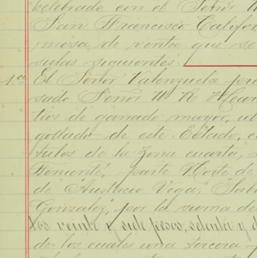 celebrado con el Señor
San Francisco Califor
mesa de venta que se
sulas siguientes
1ª El Señor Valenzuela pro
sado Señor W R Hear
tios de ganado mayor, ub
de este Estado, e
tulos de la Zona cuarta,
Poniente, parte Norte de
de Anastacio Vega, Sab
Gonzalez, por la suma de
tos veinte y siete pesos, setenta y d
de los cuales una tercera p